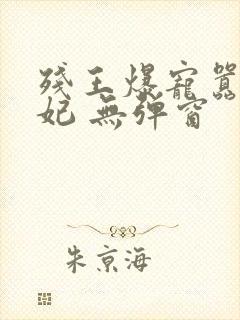 残王爆寵囂
妃 無弹窗
朱京海